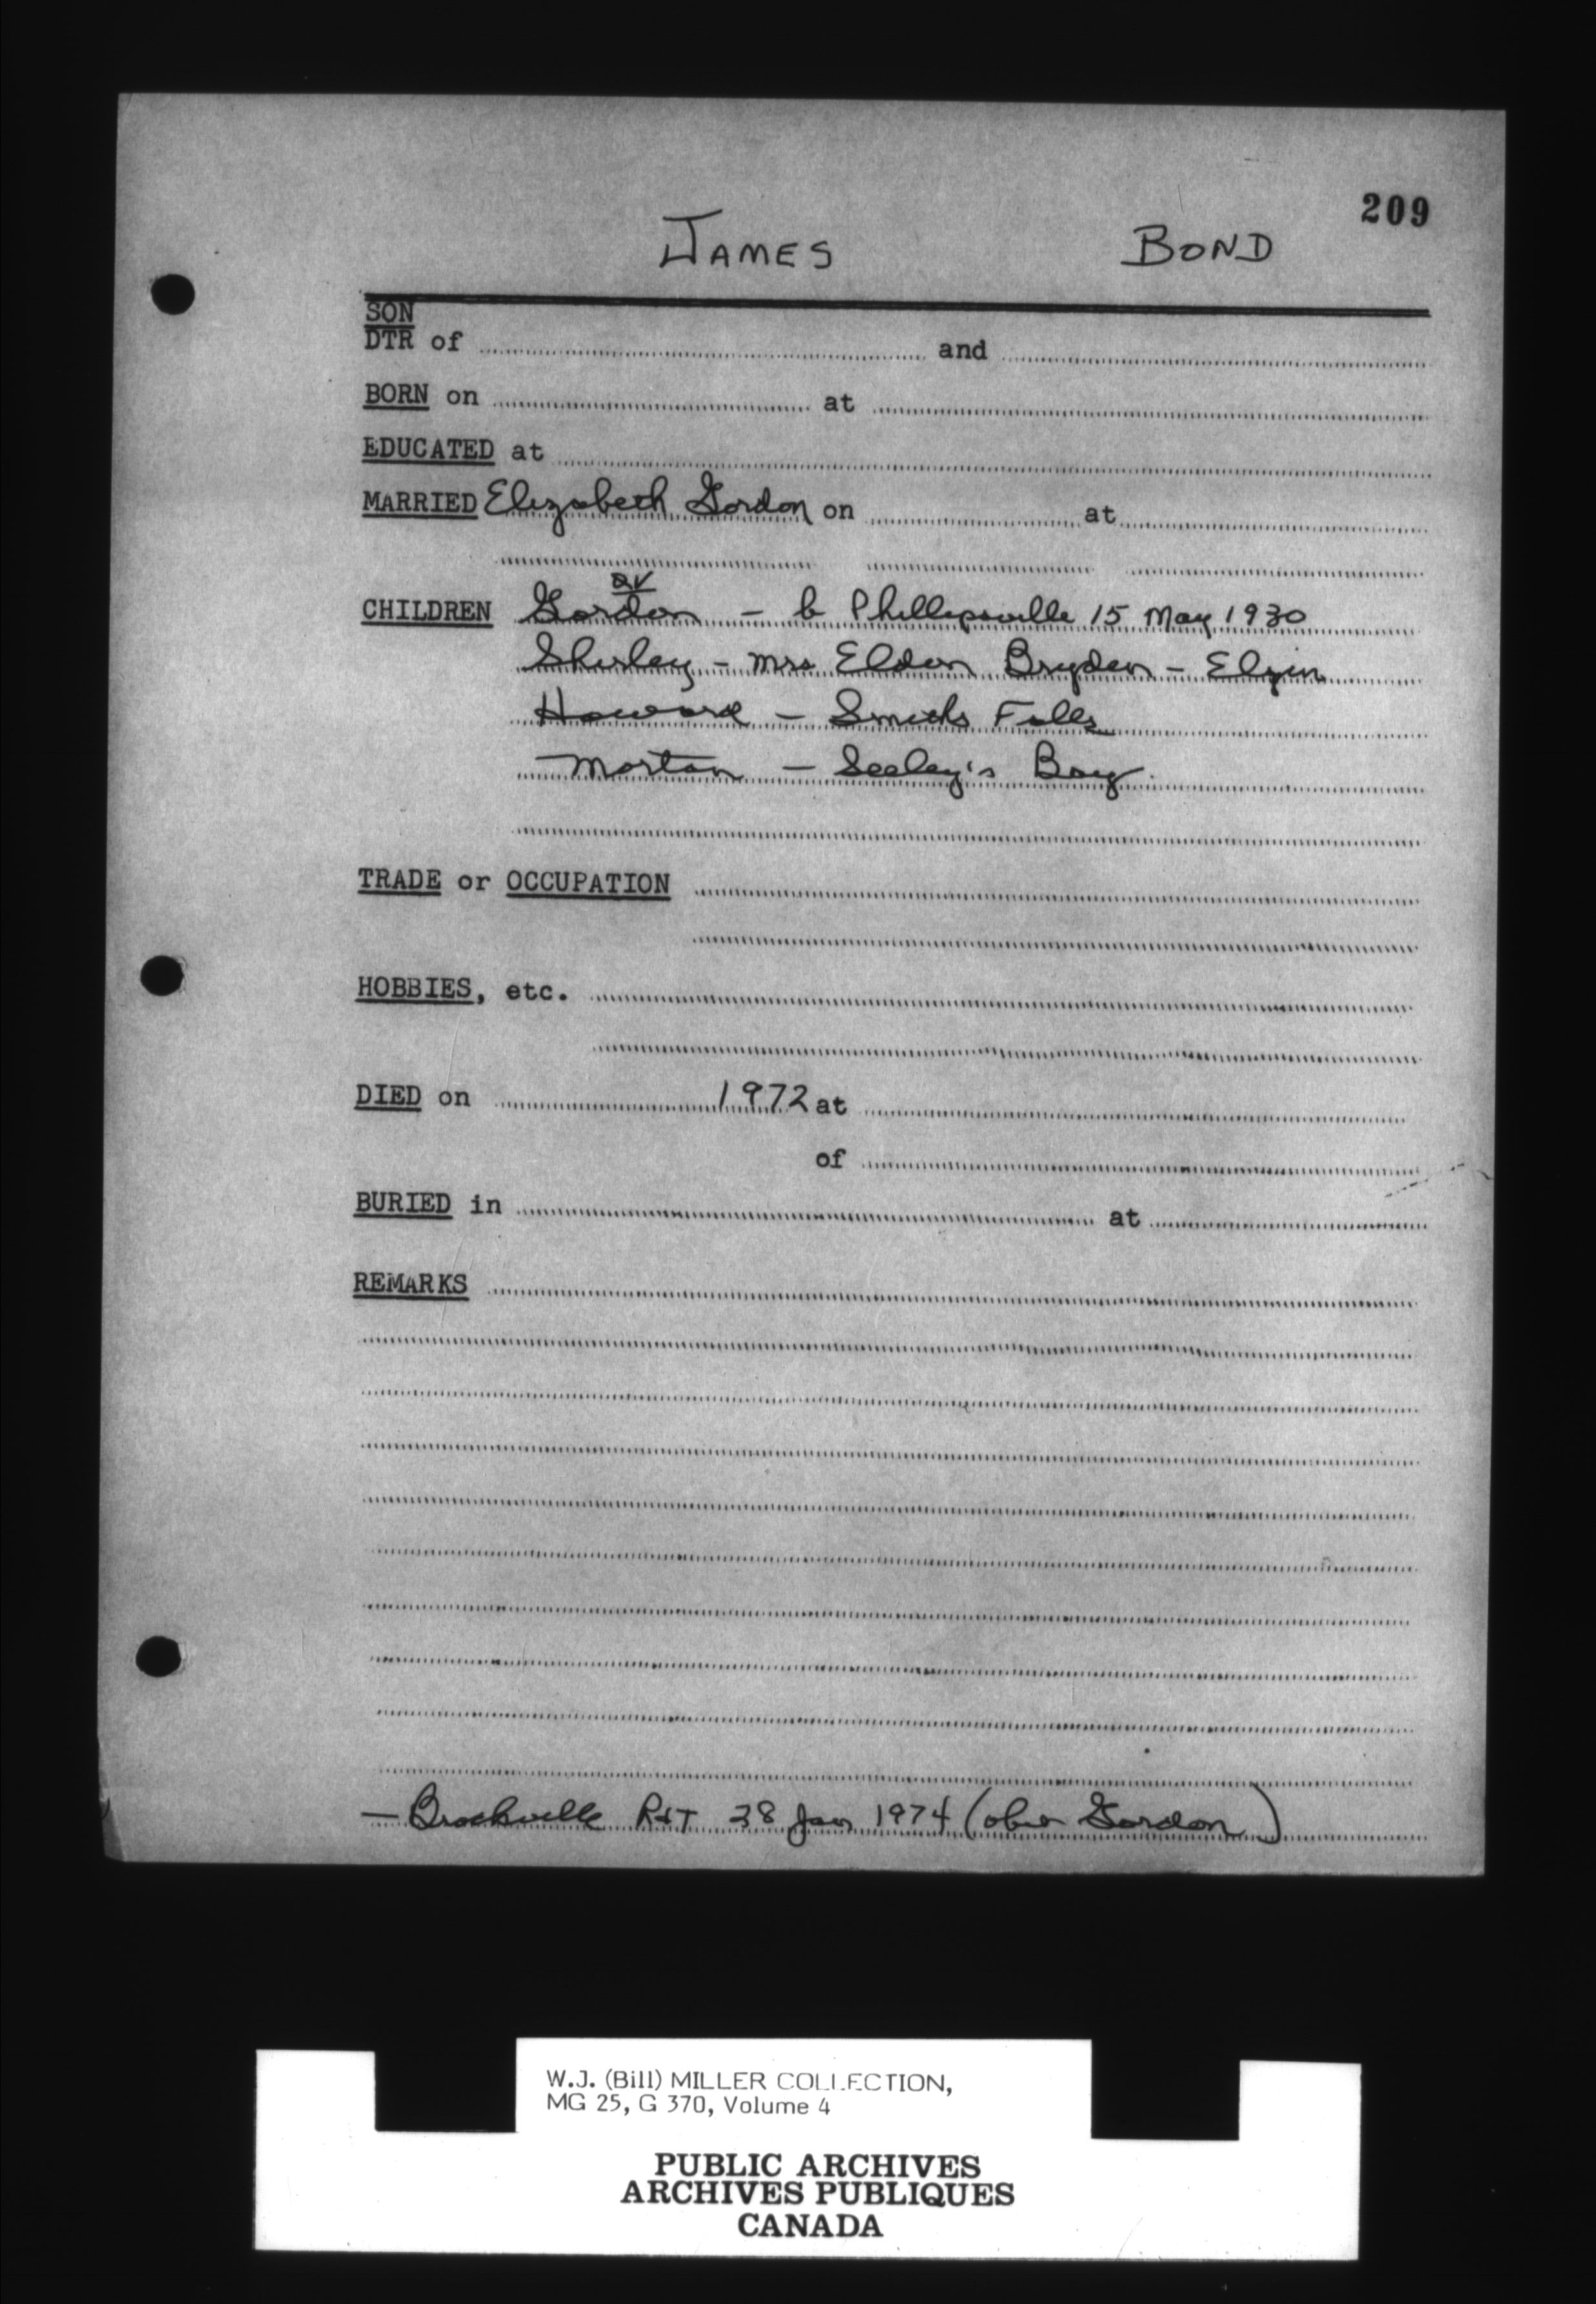 209
JAMES BOND
SON
DTR of and
BORN on at
EDUCATED at
MARRIED Elizabeth Gordon on at
QV
CHILDREN Gordon - b Phillipsville 15 May 1930
Shirley - Mrs Eldon Bryden - Elgin
Howard - Smiths Falls
Morton - Seeley's Bay.
TRADE or OCCUPATION
HOBBIES, etc.
DIED on 1972 at
of
BURIED in at
REMARKS
- Brockville R&T 28 Jan 1974 (obit Gordon)
W.J. (Bill) MILLER COLLECTION,
MG 25, G 370, Volume 4
PUBLIC ARCHIVES
ARCHIVES PUBLIQUES
CANADA